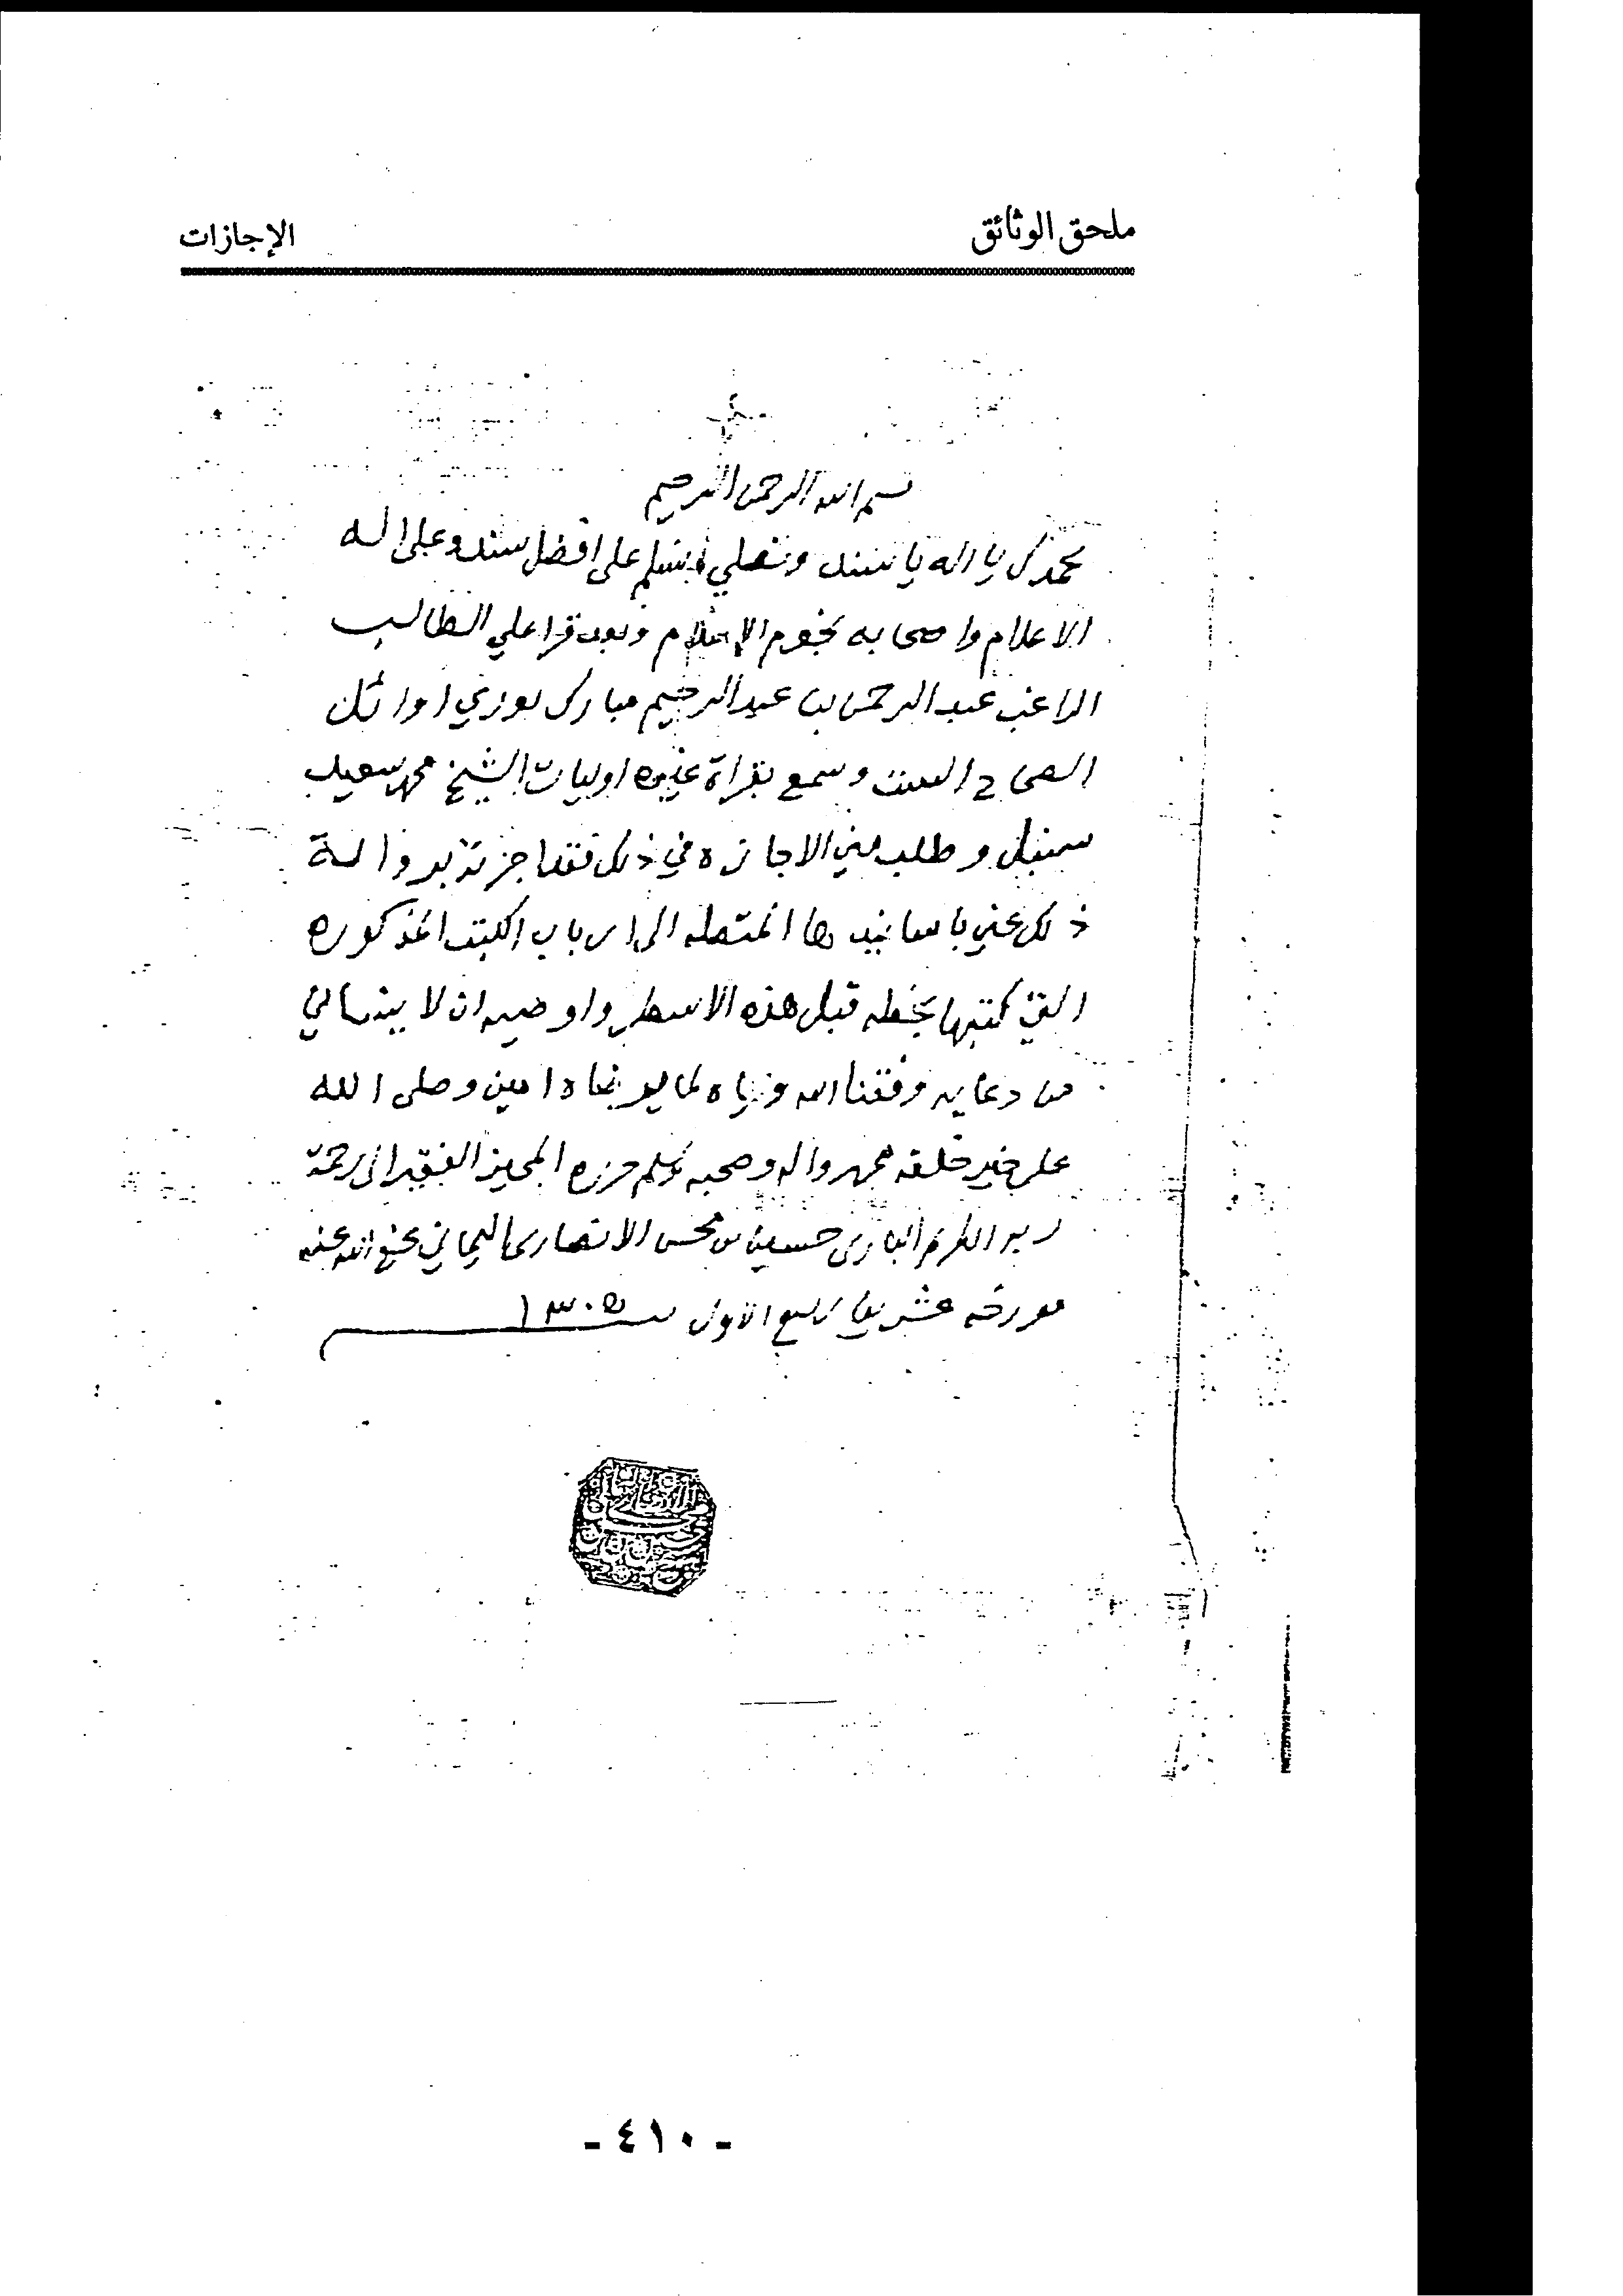 ملحق الوثائق
الإجازات
بسم الله الرحمن الرحيم
نحمدك يا اله يا سند ونصلي ونسلم على افضل سند وعلى اله
الاعلام واصحابه نجوم الاسلام وبعد قرا علي الطالب
الراغب عبد الرحمن بن عبد الرحيم مباركبوري اوائل
الصحاح الست وسمع بقراة غيره اوليات الشيخ محمد سعيد
سنبل وطلب مني الاجازه في ذلك فقد اجزته بروايـة
ذلك عني باسانيدها المتصله الى ارباب الكتب المذكوره
التي كتبها بخطه قبل هذه الاسطر واوصيه ان لا ينساني
من دعايه وفقنا الله واياه لما يرضاه امين وصلى الله
على خير خلقه محمد واله وصحبه وسلم حرره المجيز الفقير الى رحمة
ربه الكريم الباري حسين بن محسن الانصاري اليماني عفى الله عنه
مورخه عشرين ربيع الاول سنة ١٣٠٥
- ٤١٠ -